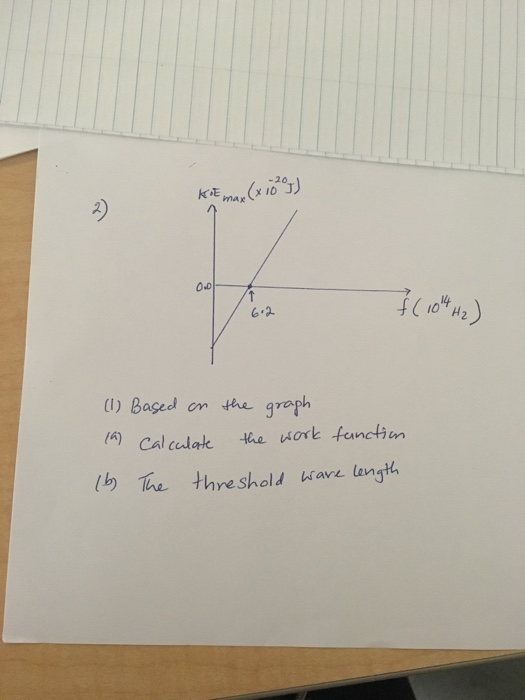 2)
K.E max (x 10⁻²⁰ J)
0.0
6.2
f ( 10¹⁴ Hz )
(1) Based on the graph
(a) Calculate the work function
(b) The threshold wave length